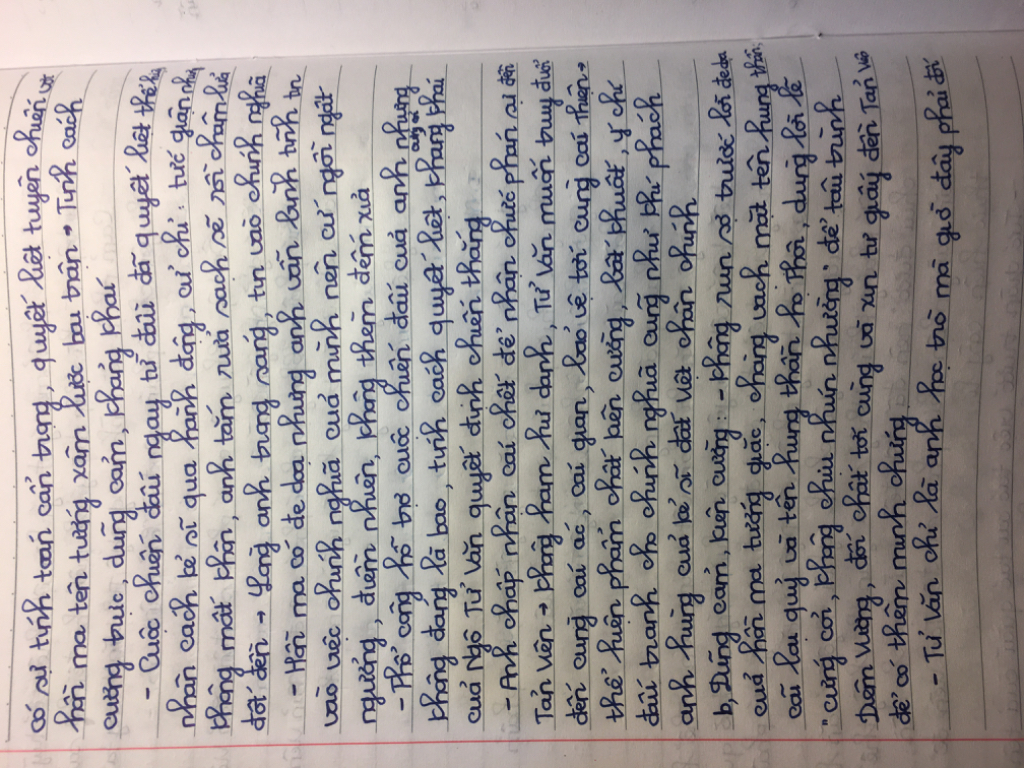 có sự tính toán cẩn trọng, quyết liệt tuyên chiến với
hồn ma tên tướng xâm lược bại trận → Tính cách
cương trực, dũng cảm, khảng khái
- Cuộc chiến đấu ngay từ đầu đã quyết liệt thể hiện
nhân cách kẻ sĩ qua hành động, cử chỉ: tức giận nhưng
không mất khôn, anh tắm rửa sạch sẽ rồi châm lửa
đốt đền → Lòng anh trong sáng, tin vào chính nghĩa
- Hồn ma có đe dọa nhưng anh vẫn bình tĩnh tin
vào việc chính nghĩa của mình nên cứ ngồi ngất
ngưởng, điềm nhiên, không thèm đếm xỉa
- Thổ công hỗ trợ cuộc chiến đấu của anh nhưng
không đáng là bao, tính cách quyết liệt, khảng khái
của Ngô Tử Văn quyết định chiến thắng
- Anh chấp nhận cái chết để nhận chức phán sự đền
Tản Viên → không ham hư danh, Tử Văn muốn truy đuổi
đến cùng cái ác, cái gian, bảo vệ tới cùng cái thiện →
thể hiện phẩm chất kiên cường, bất khuất, ý chí
đấu tranh cho chính nghĩa cũng như khí phách
anh hùng của kẻ sĩ đất Việt chân chính
b, Dũng cảm, kiên cường: - không run sợ trước lời đe dọa
của hồn ma tướng giặc, chàng vạch mặt tên hung thần,
cãi lại quỷ và tên hung thần họ Thôi, dùng lời lẽ
"cứng cỏi, không chịu nhún nhường" để tâu trình
Diêm Vương, đối chất tới cùng và xin tư giấy đến Tản Viên
để có thêm minh chứng
- Tử Văn chỉ là anh học trò mà giờ đây phải đối